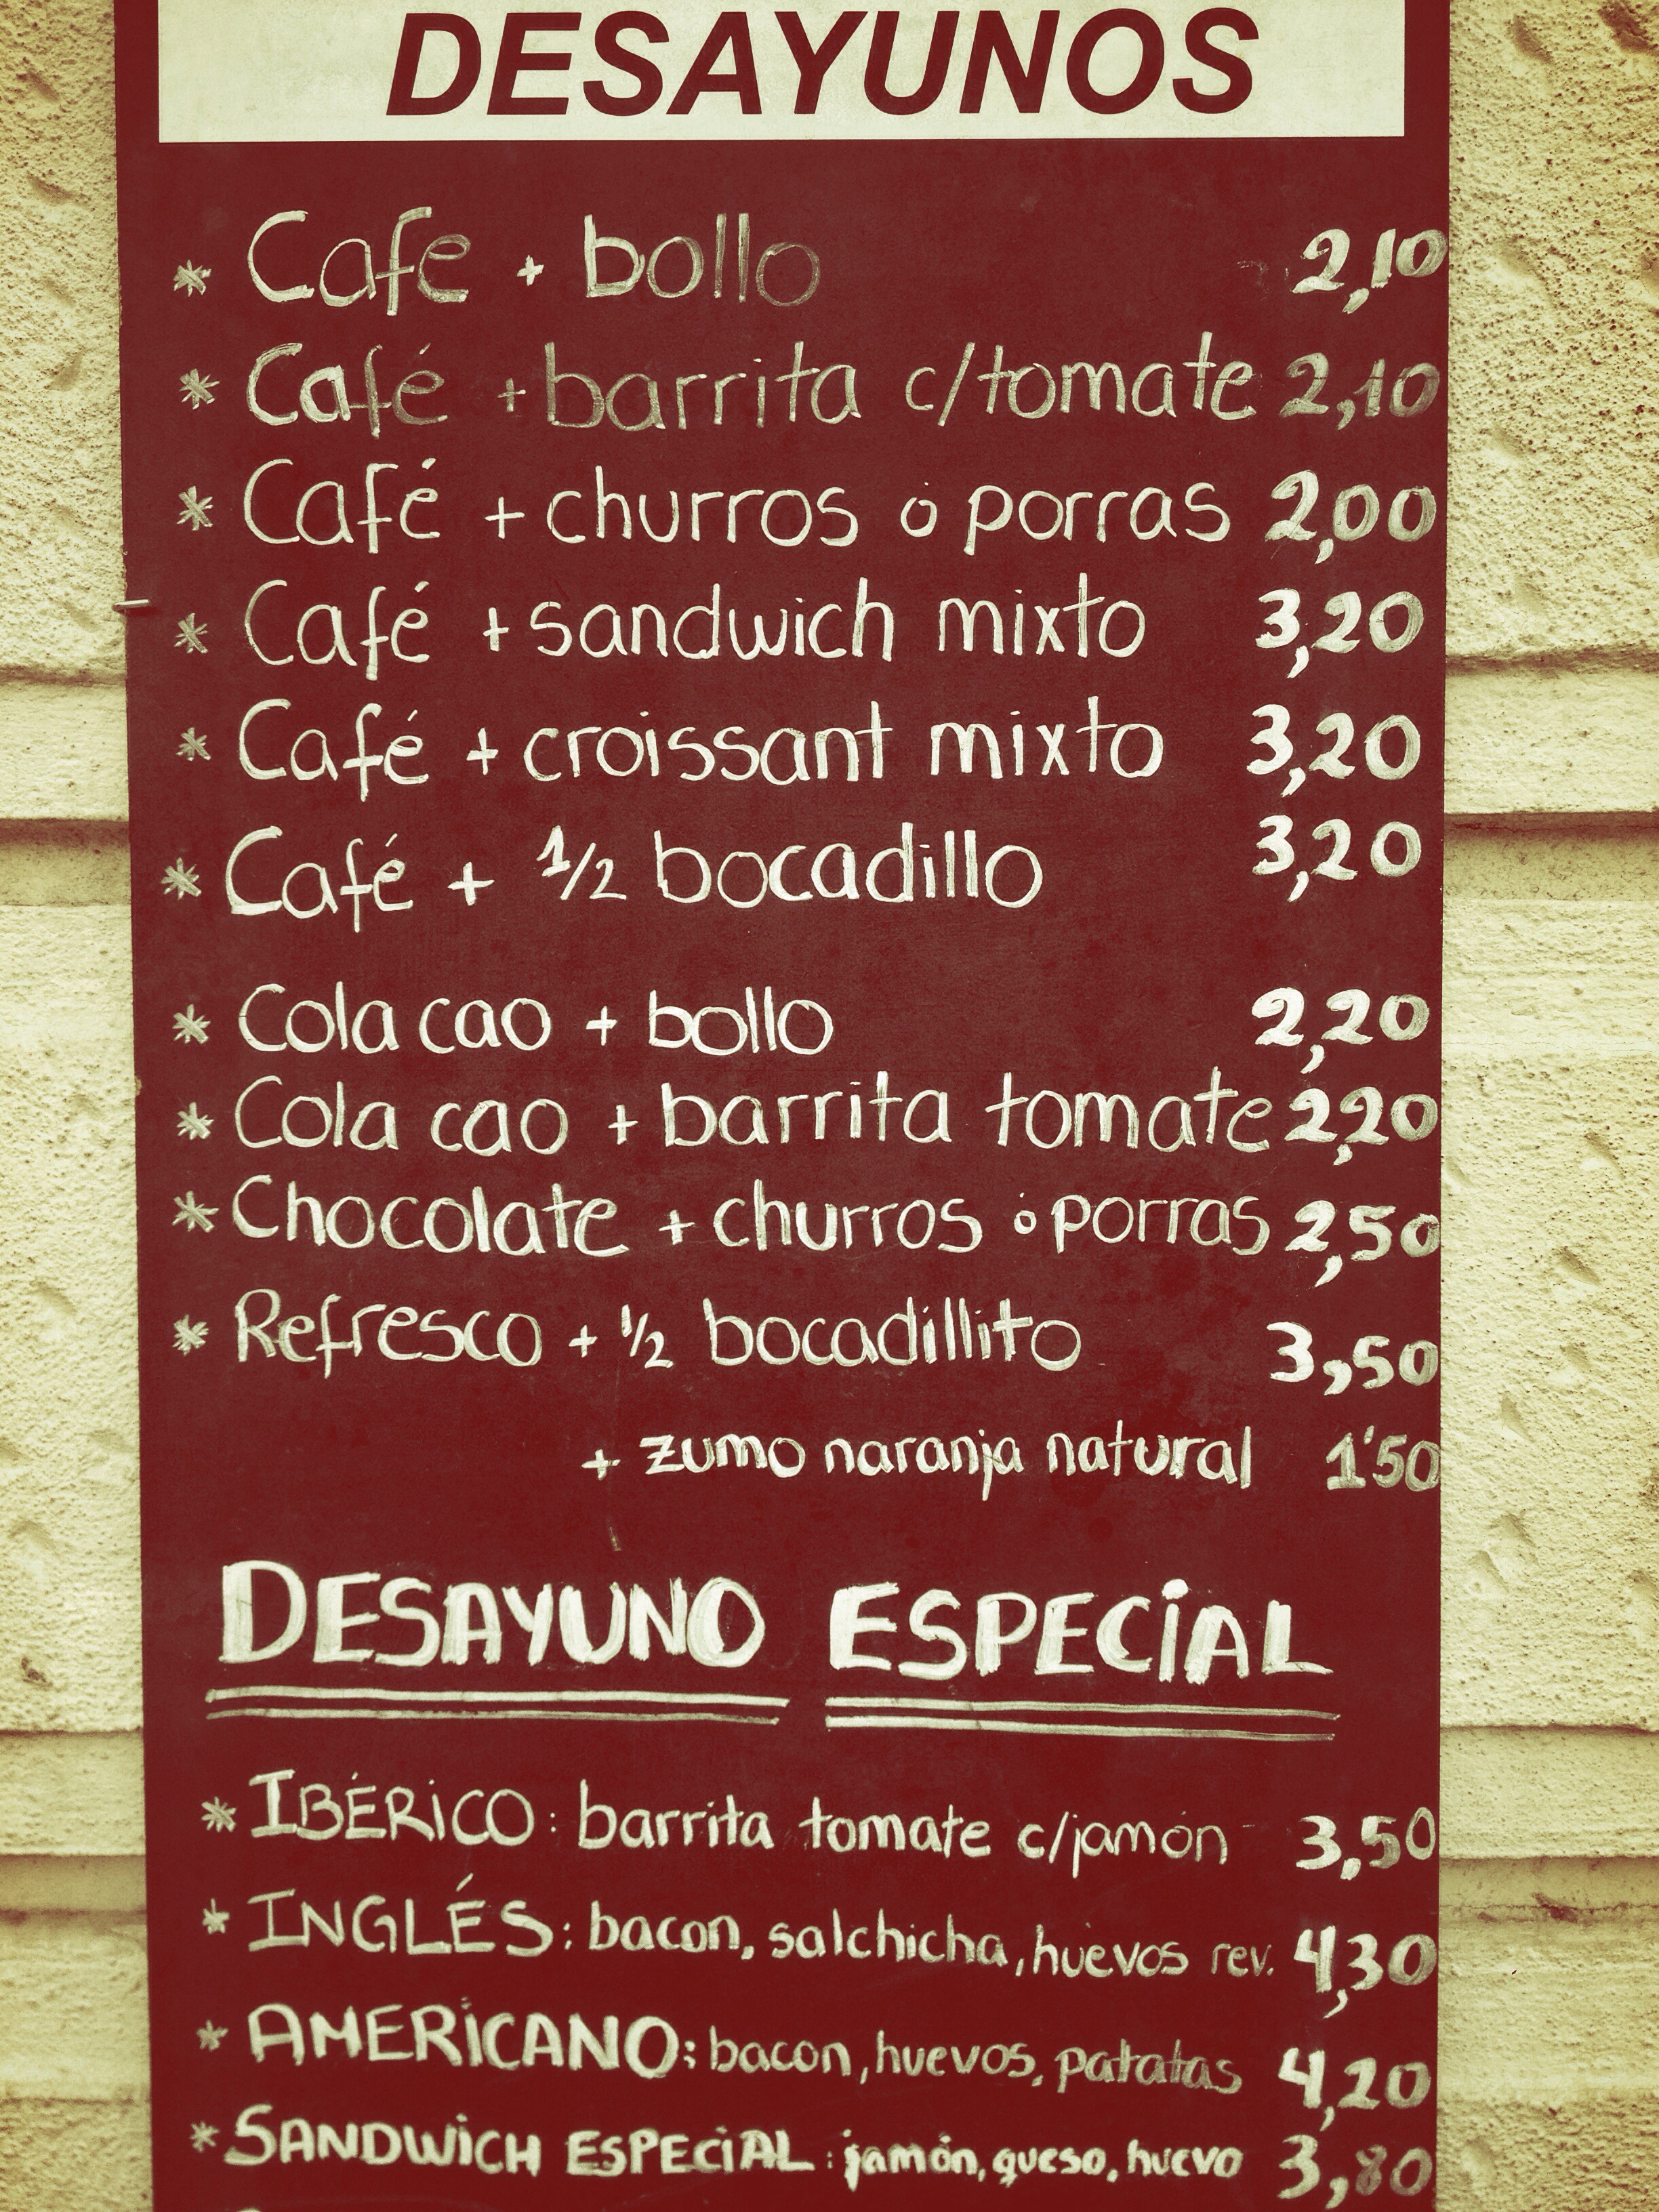 DESAYUNOS
* Cafe + bollo 2,10
* Café + barrita c/tomate 2,10
* Café + churros ó porras 2,00
* Café + sandwich mixto 3,20
* Café + croissant mixto 3,20
* Café + 1/2 bocadillo 3,20
* Cola cao + bollo 2,20
* Cola cao + barrita tomate 2,20
* Chocolate + churros ó porras 2,50
* Refresco + 1/2 bocadillito 3,50
+ zumo naranja natural 1'50
DESAYUNO ESPECIAL
* IBÉRICO: barrita tomate c/jamón 3,50
* INGLÉS: bacon, salchicha, huevos rev. 4,30
* AMERICANO: bacon, huevos, patatas 4,20
* SANDWICH ESPECIAL: jamón, queso, huevo 3,80